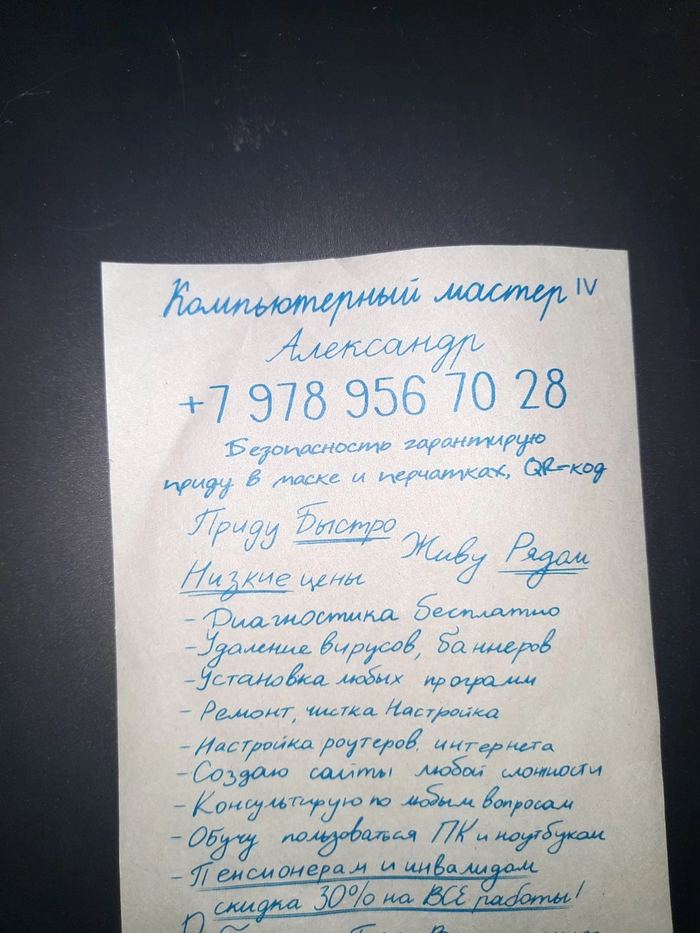 Компьютерный мастер IV
Александр
+7 978 956 70 28
Безопасность гарантирую
приду в маске и перчатках, QR-код
Приду Быстро
Живу Рядом
Низкие цены
- Диагностика бесплатно
- Удаление вирусов, баннеров
- Установка любых программ
- Ремонт, чистка Настройка
- Настройка роутеров, интернета
- Создаю сайты любой сложности
- Консультирую по любым вопросам
- Обучу пользоваться ПК и ноутбуком
- Пенсионерам и инвалидам
скидка 30% на ВСЕ работы!